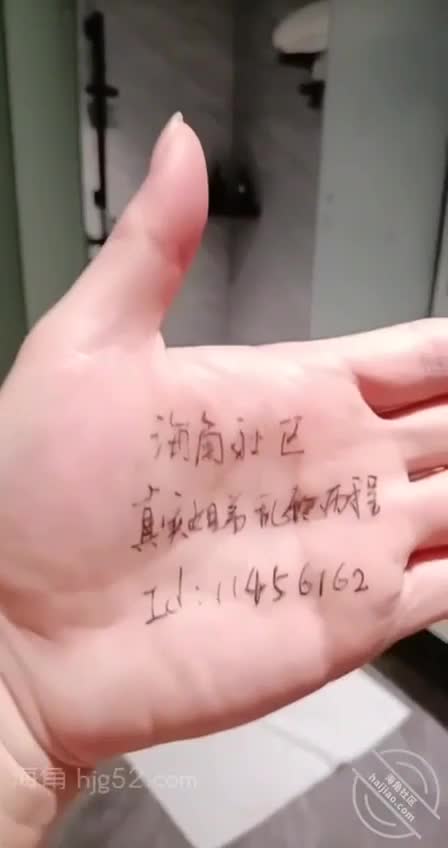 海角社区
真实姐弟乱伦历程
Id:11456162
海角 hjg52.com
海角社区
haijiao.com